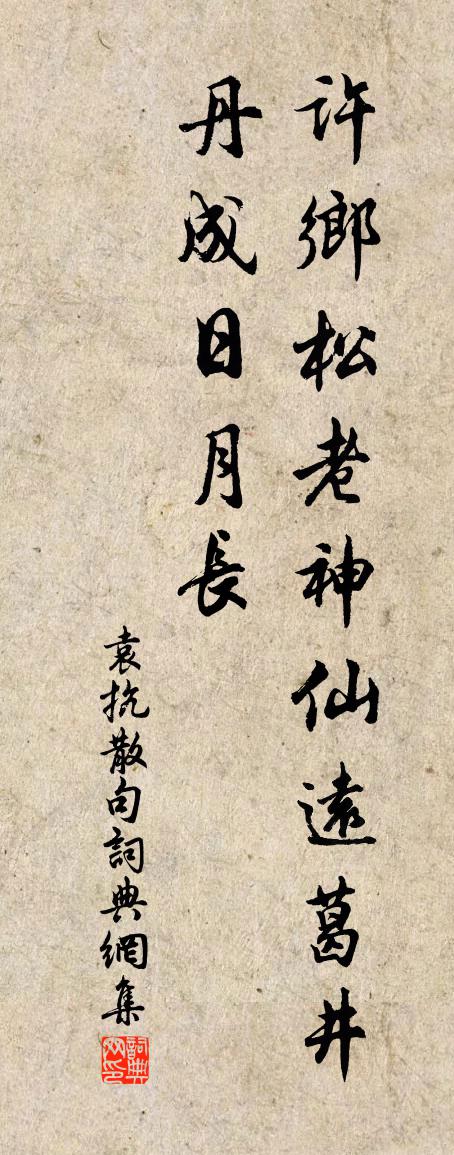 許鄉松老神仙遠葛井
丹成日月長
袁抗散句詞典網集
詞典網印